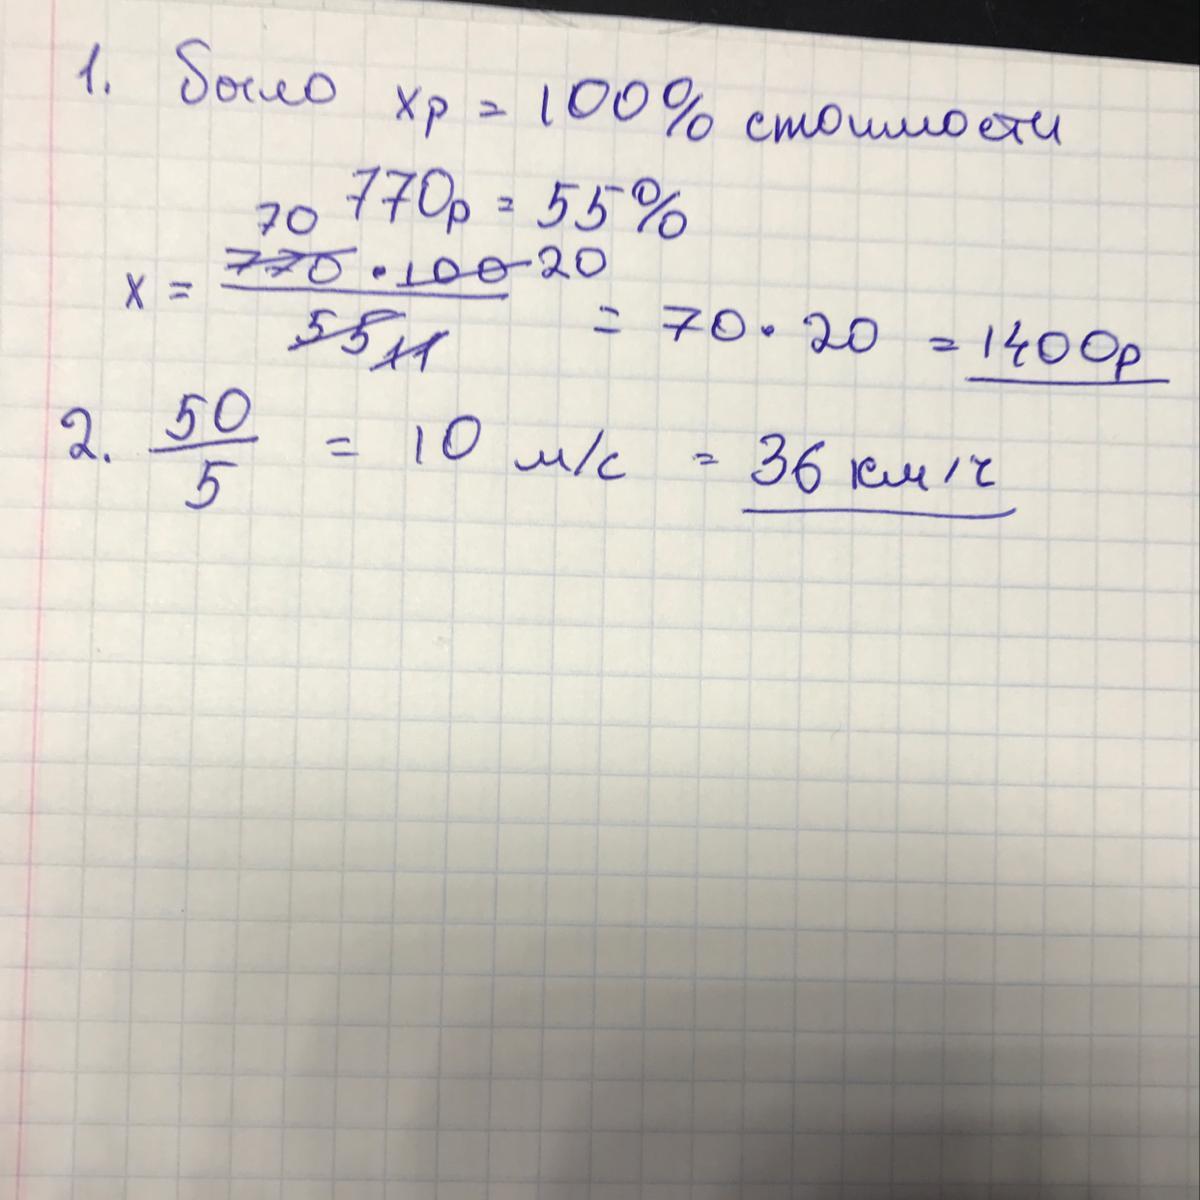 1. Было xр = 100% стоимости
770р = 55%
70
x = 770 · 100 20
55 11
= 70 · 20 = 1400р
2. 50/5 = 10 м/с = 36 км/ч